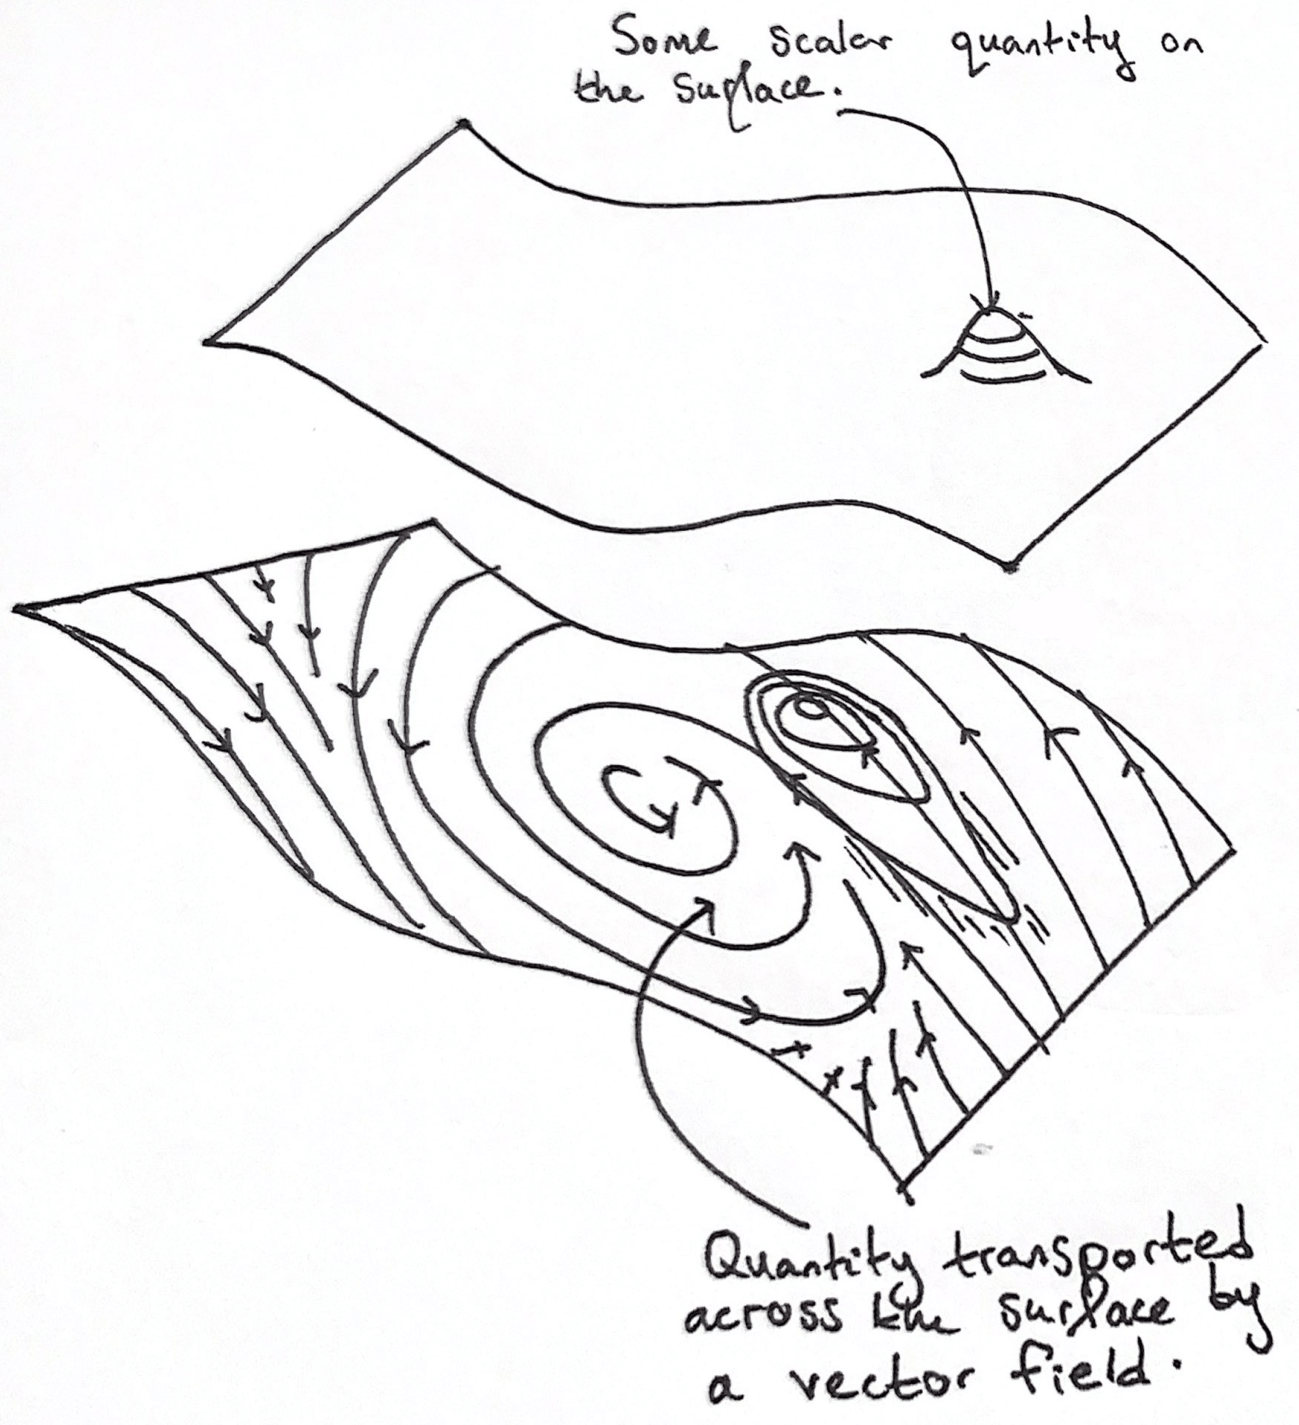 Some scalar quantity on
the surface.
Quantity transported
across the surface by
a vector field.